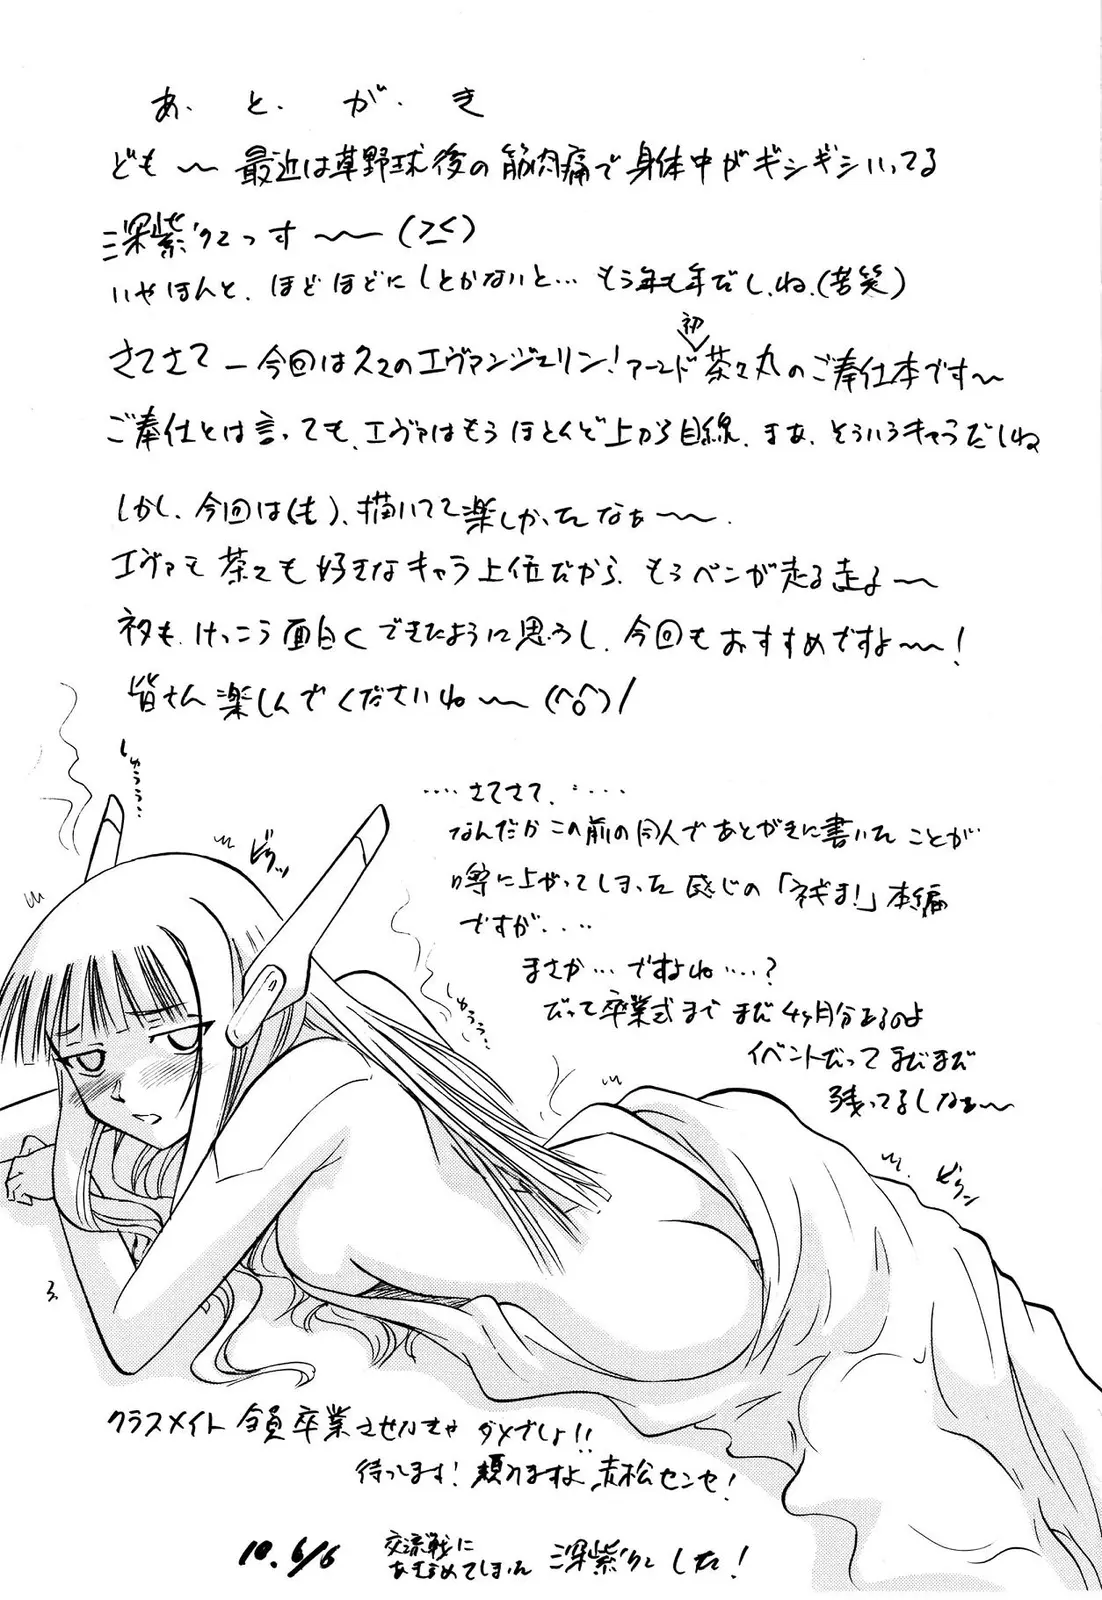 あ、と、が、き
ども〜 最近は草野球後の筋肉痛で身体中がギシギシいってる
深紫'クこっす〜〜 (>_<)
いやほんと、ほどほどにしとかないと… もう年も年だし、ね、(苦笑)
さてさて ー今回は久々のエヴァンジェリン!アーンド初茶々丸のご奉仕本です〜
ご奉仕とは言っても、エヴァはもうほとんど上から目線、まあ、そういうキャラだしね
しかし、今回は(も)、描いてて楽しかったなぁ〜〜.
エヴァも茶々も好きなキャラ上位だから、もうペンが走る走る〜〜
ネタも、けっこう面白くできたように思うし、今回もおすすめですよ〜〜!
皆さん楽しんでくださいね〜〜 (^o^)/
しゅううう…
ビクッ
‥‥さてさて、‥‥‥
なんだかこの前の同人であとがきに書いたことが
噂に上がってしまった感じの「ネギま!」本編
ですが、‥‥
まさか…ですよね‥‥?
だって卒業式まで まだ4ヶ月分あるのよ
イベントだって まだまだ
残ってるしなぁ〜〜
ビクン
ろ
クラスメイト 全員卒業させなきゃ ダメでしょ!!
待ってます! 頼みますよ、赤松センセ!
10. 6/6
交流戦に
あきらめてしまった 深紫'クこ した!